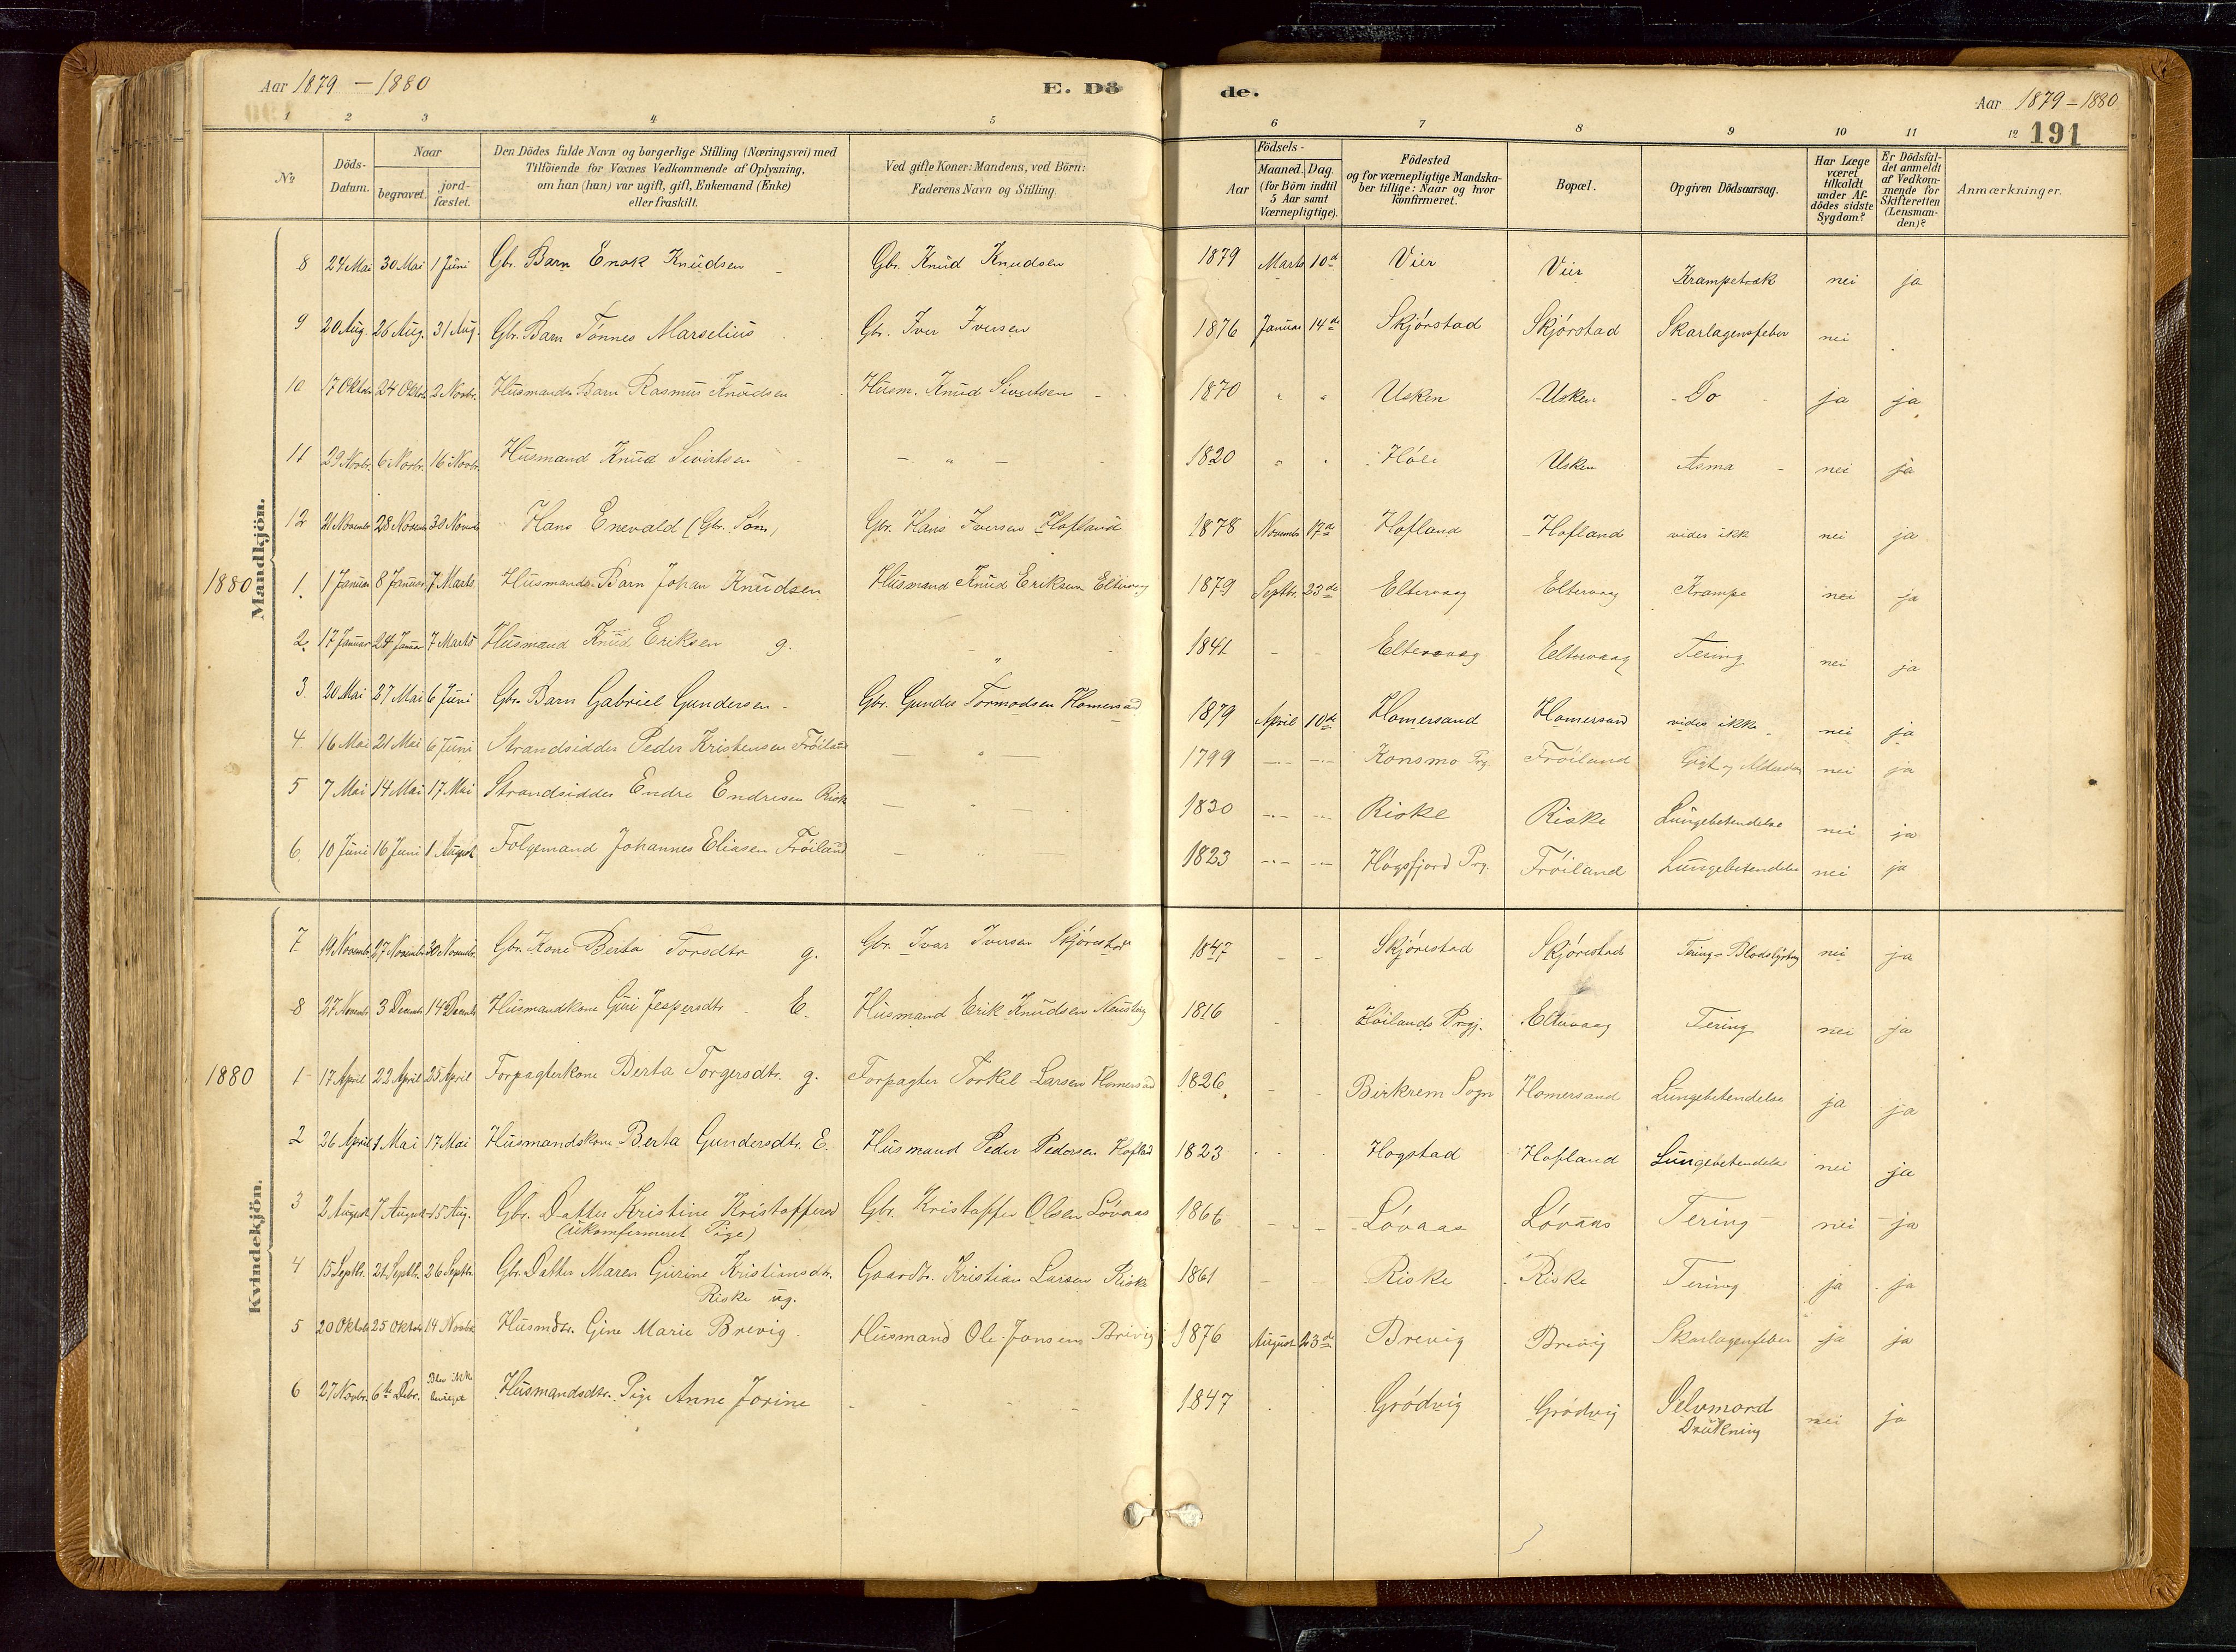 Aar 1879 – 1880 E. Dö de. Aar 1879 – 1880
191
1 2 3 4 5 6 7 8 9 10 11 12
No
Döds-Datum.
Naar
begravet.
jord-fæstet.
Den Dödes fulde Navn og borgerlige Stilling (Næringsvei) med
Tilföiende for Voxnes Vedkommende af Oplysning,
om han (hun) var ugift, gift, Enkemand (Enke)
eller fraskilt.
Ved gifte Koner: Mandens, ved Börn:
Faderens Navn og Stilling.
Födsels-
Aar
Maaned. Dag.
(for Börn indtil
5 Aar samt
Værnepligtige).
Födested
og for værnepligtige Mandska-
ber tillige: Naar og hvor
konfirmeret.
Bopæl.
Opgiven Dödsaarsag.
Har Læge
været
tilkaldt
under Af-
dödes sidste
Sygdom?
Er Dödsfal-
det anmeldt
af Vedkom-
mende for
Skifteretten
(Lensman-
den)?
Anmærkninger.
Mandkjön.
8 24 Mai 30 Mai 1 Juni Gbr. Barn Enok Knudsen Gbr. Knud Knudsen 1879 Marts 10d Vier Vier Krampetok nei ja
9 20 Aug. 26 Aug. 31 Aug. Gbr. Barn Tönnes Marselius Gbr. Iver Iversen 1876 Januar 14d Skjörstad Skjörstad Skarlagensfeber nei
10 17 Oktobr 24 Oktob 2 Novbr. Husmands Barn Rasmus Knudsen Husm. Knud Sivertsen 1870 " " Usken Usken Do ja ja
11 29 Novbr. 6 Novbr. 16 Novbr. Husmand Knud Sivertsen — " — 1820 " " Höle Usken Asma nei ja
12 21 Novembr 28 Novembr 30 Novembr Hans Enevald (Gbr. Søn) Gbr. Hans Iversen Hofland 1878 Novembr 17d Hofland Hofland vides ikk nei ja
1880 1. 1 Januar 8 Januar 7 Marts Husmands Barn Johan Knudsen Husmand Knud Eriksen Eltervaag 1879 Septbr. 23de Eltervaag Eltervaag Krampe nei ja
2. 17 Januar 24 Januar 7 Marts Husmand Knud Eriksen g. " 1841 – – Eltervaag Eltervaag Tering nei ja
3. 20 Mai 27 Mai 6 Juni Gbr. Barn Gabriel Gundersen Gbr. Gunder Tormodsen Homersand 1879 April 10de Homersand Homersand vides ikke nei ja
4 16 Mai 21 Mai 6 Juni Strandsidder Peder Kristensen Fröiland — " — 1799 Konsmo Prg. Fröiland Gigt og Alderdom nei ja
5 7 Mai 14 Mai 17 Mai Strandsidder Endre Endresen Riske — " — 1830 Riske Riske Lungebetendelse nei ja
6. 10 Juni 16 Juni 1 August Folgemand Johannes Eliasen Fröiland — " 1823 Högsfjord Prg. Fröiland Lungebetendelse nei ja
Kvindekjön.
7 19 Novembr. 27 Novembr 30 Novembr. Gbr. Kone Berta Torsdtr g. Gbr. Ivar Iversen Skjörestad 1847 – – Skjörestad Skjörestad Tering – Blodstyrtng nei ja
8 27 Novembr 3 Decembr 14 Decembr Husmandkone Guri Jespersdtr E. Husmand Erik Knudsen 1816 Höilands Prgj. Eltervaag Tering nei ja
1880 1 17 April 22 April 25 April Forpagterkone Berta Torgersdtr. g. Forpagter Torkel Larsen Homersand 1826 Birkrem Sogn Homersand Lungebetendelse ja ja
2 26 April 1 Mai 17 Mai Husmandskone Berta Gundersdtr. E. Husmand Peder Pedersen Hofland 1823 Hogstad Hofland Lungebetendelse nei ja
3 2 August 7 August 15 Aug. Gbr. Datter Kristine Kristoffersd Gbr. Kristoffer Olsen Lövaas 1866 Lövaas Lövaas Tering nei ja
(ukomfirmeret Pige)
4 15 Septbr. 21 Septbr. 26 Septbr Gbr. Datter Maren Gurine Kristiansdtr. Gaardbr. Kristian Larsen Riske 1861 Riske Riske Tering ja ja
Riske ug.
5 20 Oktobr 25 Oktobr 14 Novbr. Husmdtr. Gine Marie Brevig Husmand Ole Jonsens Brevig 1876 August 23de Brevig Brevig Skarlagenfeber ja ja
6 27 Novbr. 6te Debr. Blev ikke Husmandsdtr. Pige Anne Jorine – – – – 1847 Grödvig Grödvig Selvmord nei ja
Drukning